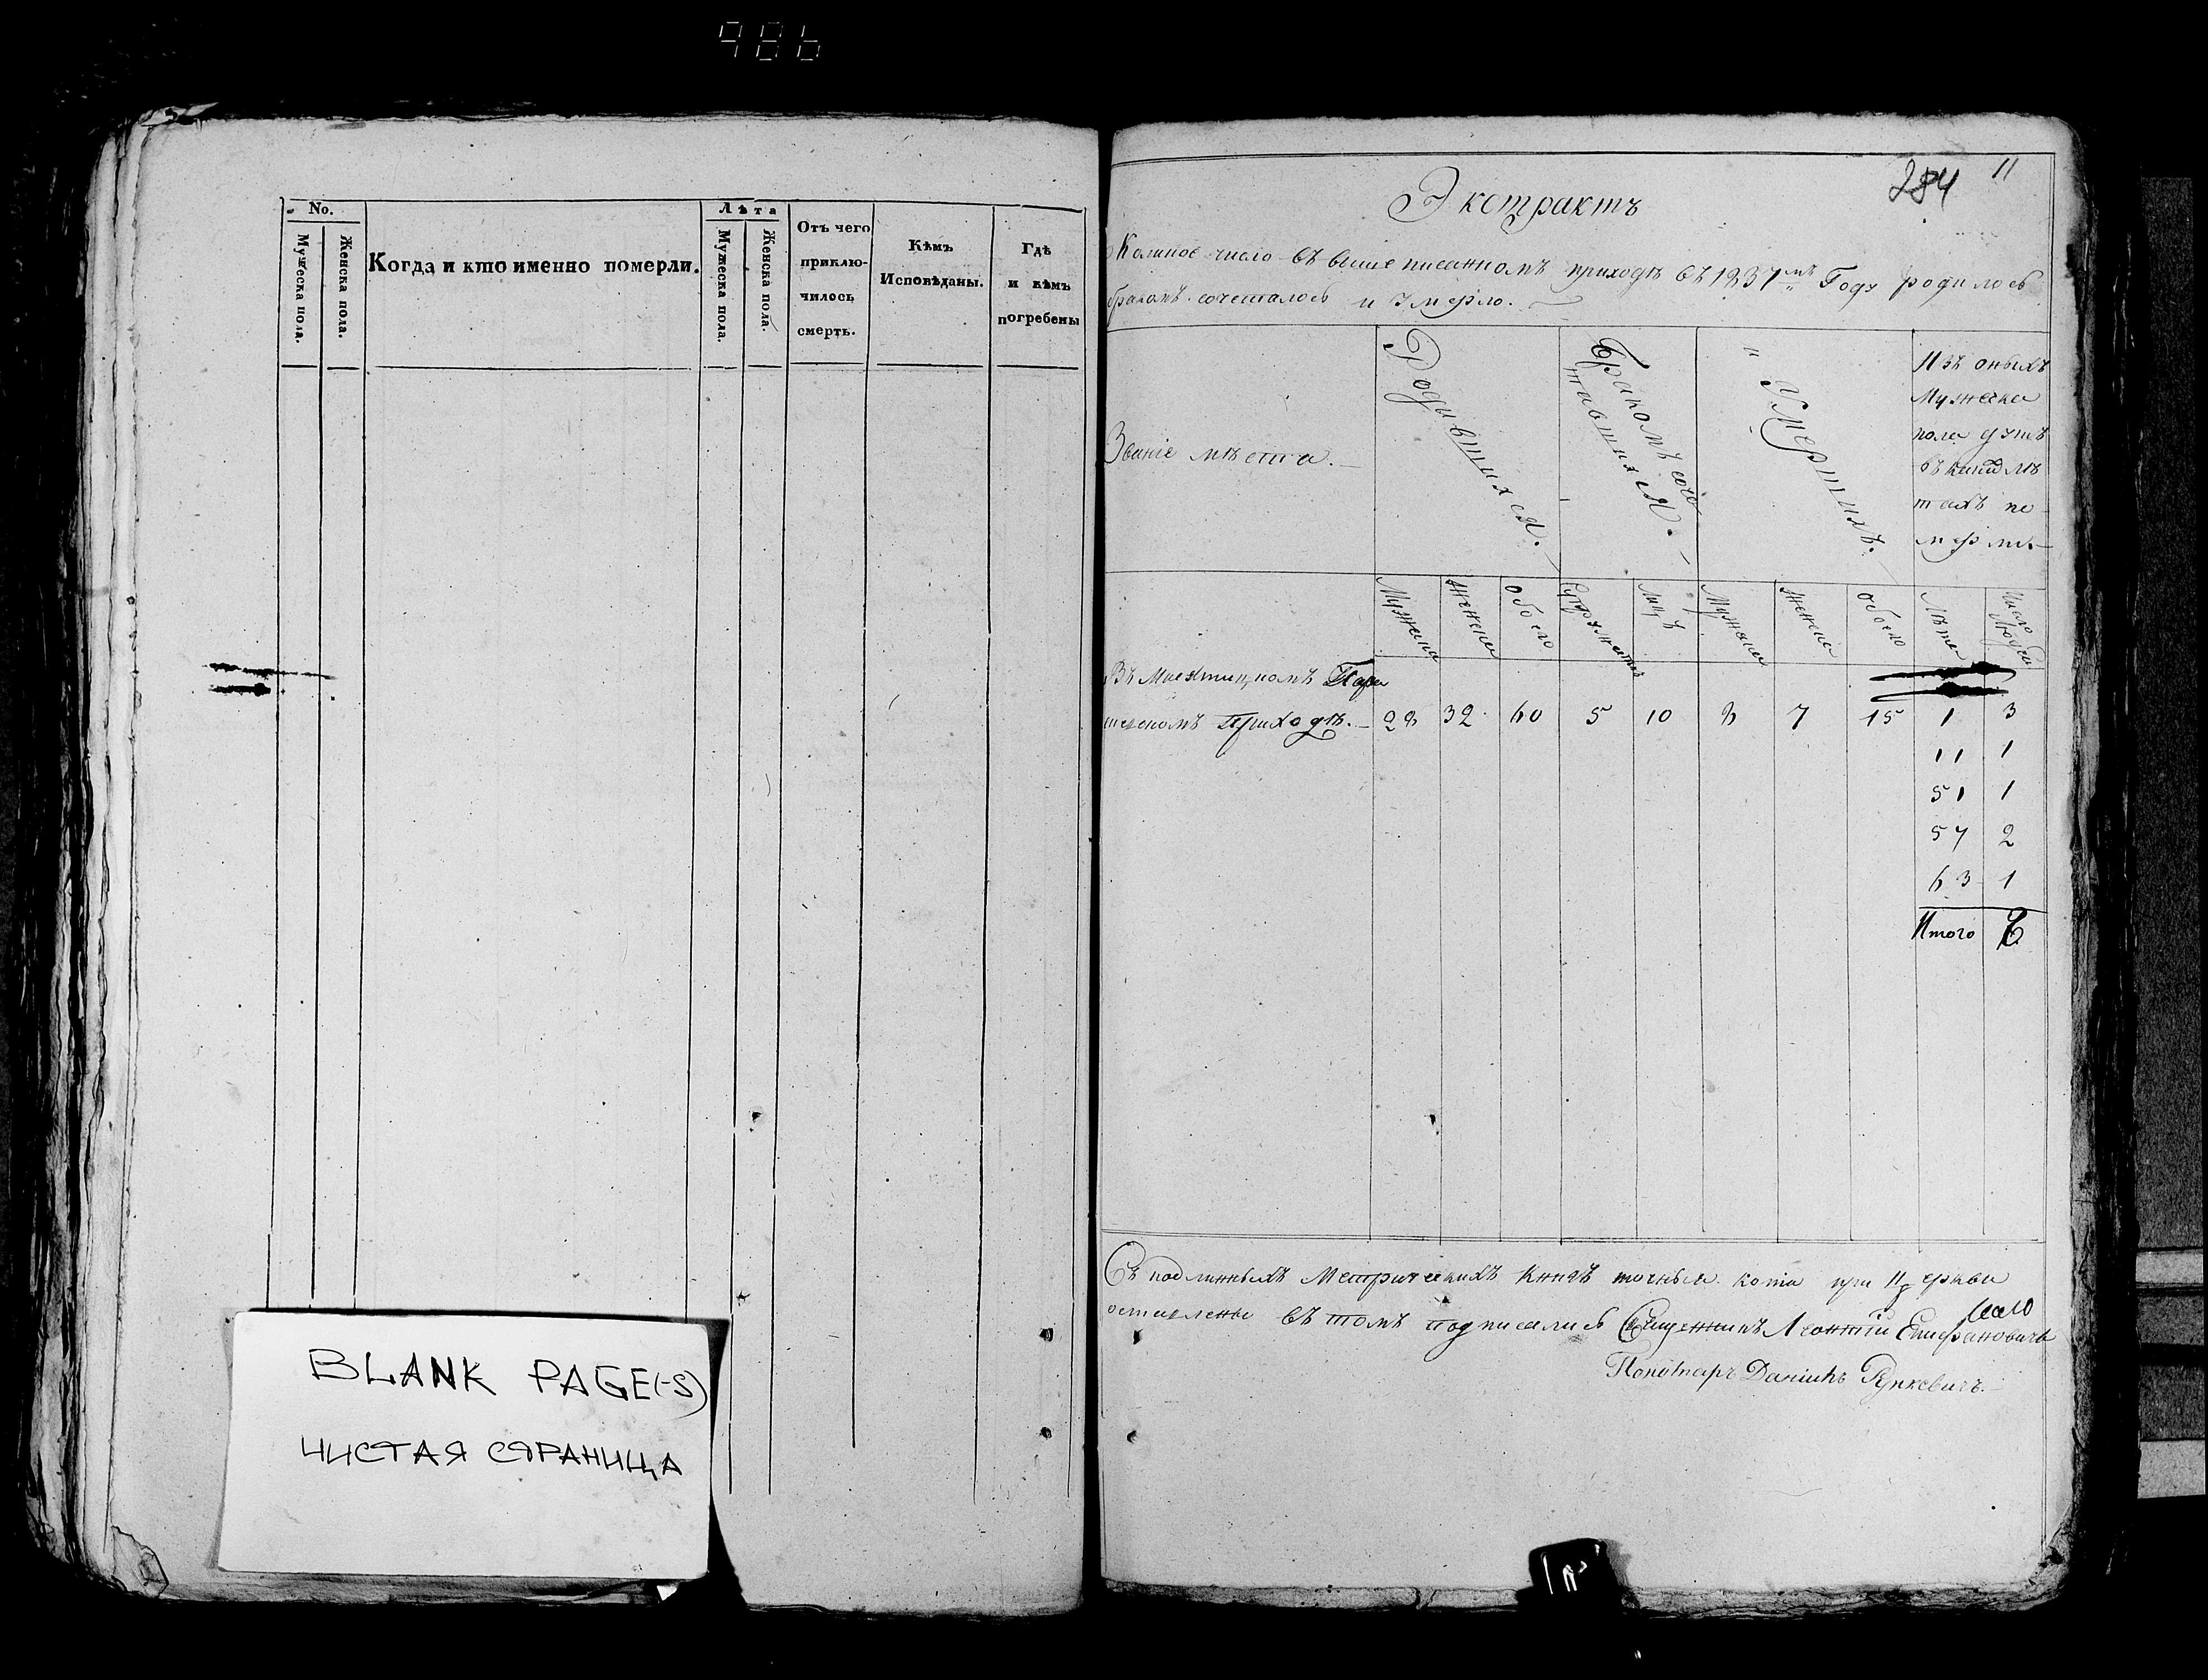 986
No.
Мужеска пола.
Женска пола.
Когда и кто именно померли.
Лѣта
Мужеска пола.
Женска пола.
Отъ чего
приклю-
чилось
смерть.
Кѣмъ
Исповѣданы.
Гдѣ
и кѣмъ
погребены
BLANK PAGE(-S)
ЧИСТАЯ СТРАНИЦА
284 11
Экстрактъ
Коликое число въ вышеписанномъ приходѣ въ 1837мъ Году родилось
бракомъ сочеталось и умерло.
Званіе мѣста.
Родившихся.
Бракомъ соче
тавшихся.
Умершихъ.
Изъ оныхъ
Мужеска
пола душъ
въ коихъ лѣ
тахъ по
мерли
Мужеска
женска
обоего
Супружествъ
лицъ
Мужеска
женска
обоего
Лѣта
Число
людей
Въ
шескомъ Приходѣ. 28 32 60 5 10 8 7 15 1 3
11 1
51 1
57 2
63 1
Итого 8
Съ подлинныхъ Метрическихъ Книгъ точныя копіи при Церкви
оставлены въ томъ подписались Священникъ Леонтій Епифановичъ
Пономарь Даніилъ Рункевичъ.